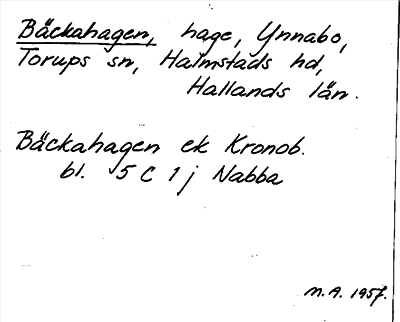 Bäckahagen, hage, Ynnabo,
Torups sn, Halmstads hd,
Hallands län.
Bäckahagen ek Kronob.
bl. 5 C 1 j Nabba
M.A. 1957.